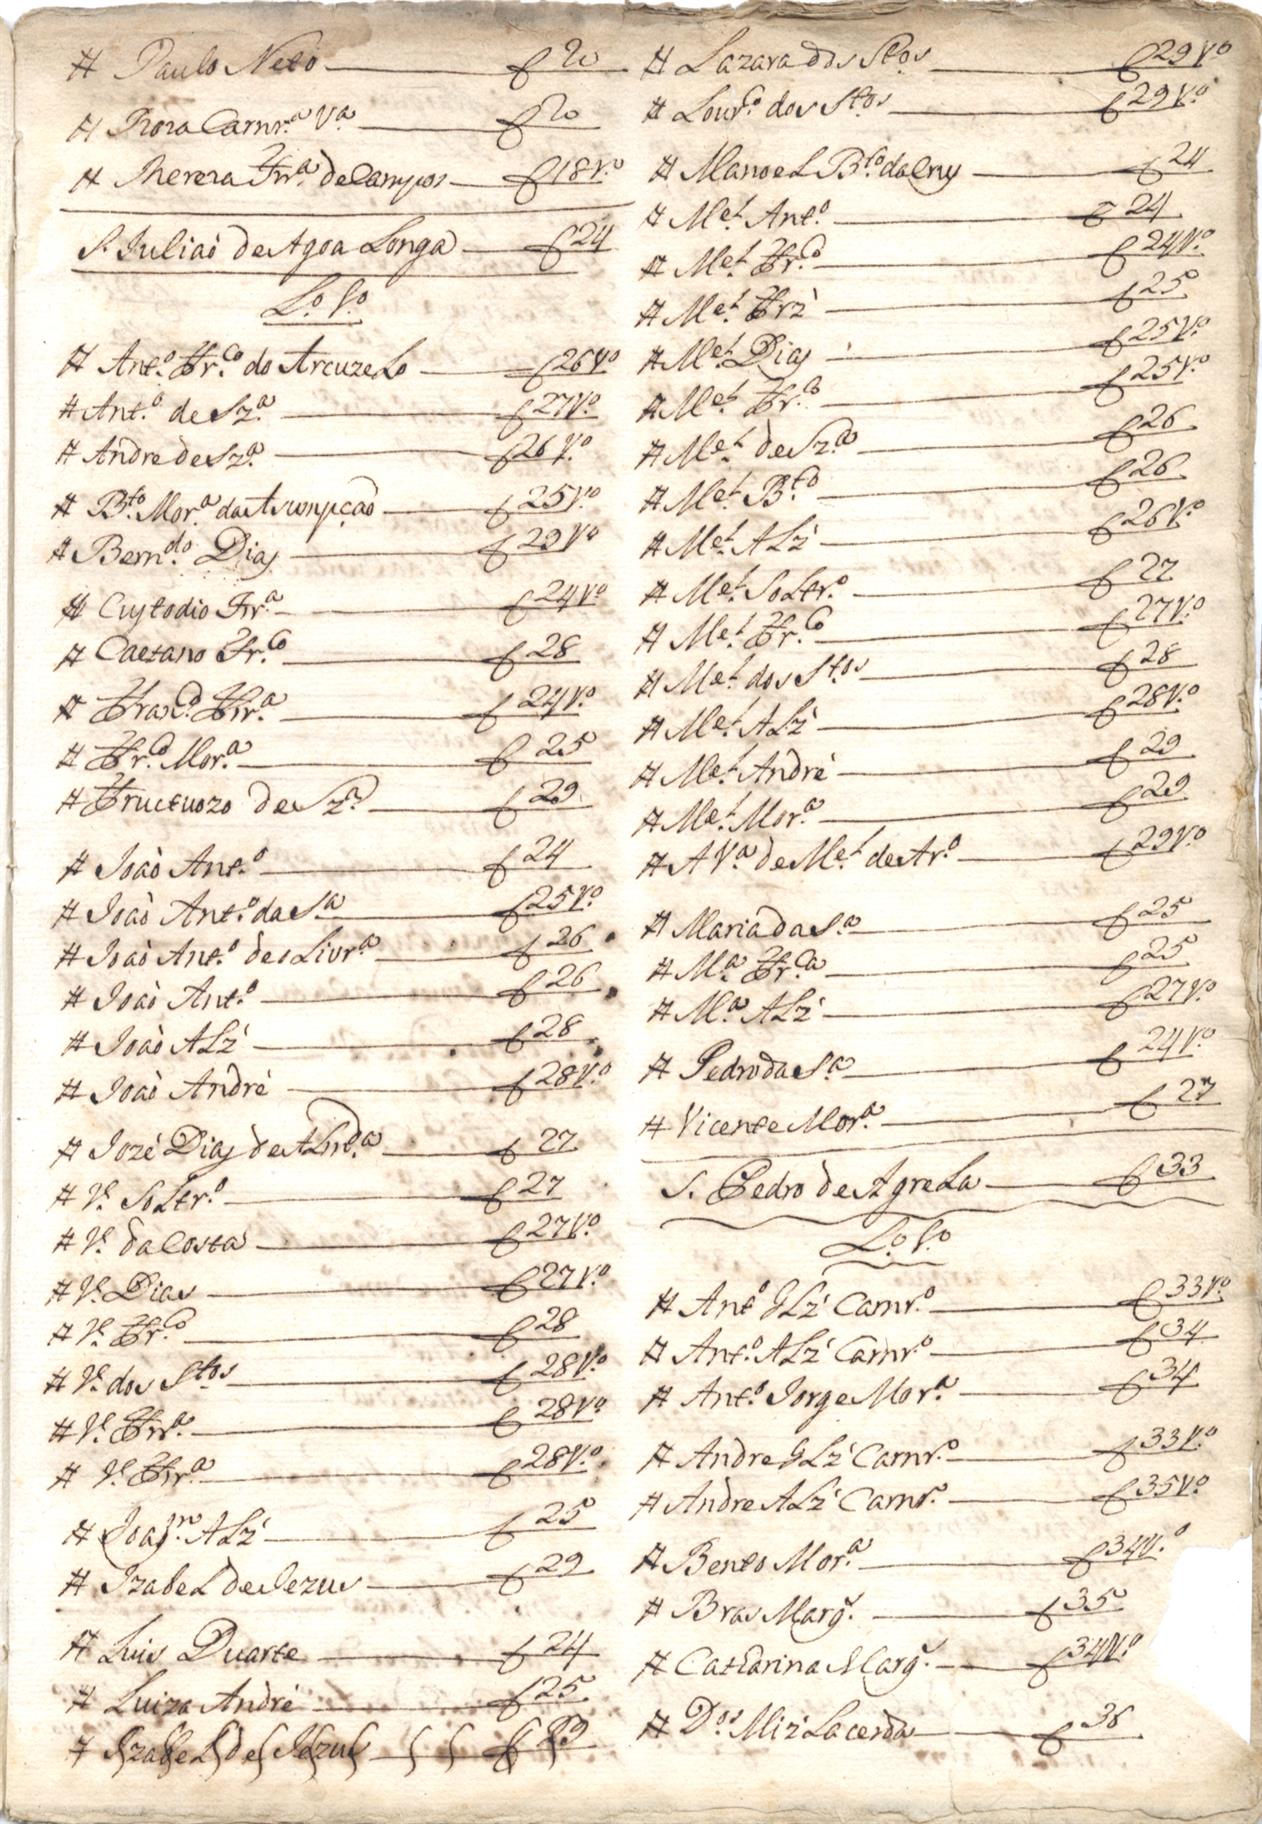 # Paulo Neto — f 20
# Roza Carnr.ª V.ª — f 20
# Thereza Frr.ª de Campos — f 18 v.º
S. Juliaò de Agoa Longa — f 24
L.º V.º
# Ant.º Fr.co do Arcuzelo — f 26 v.º
# Ant.º de Sz.ª — f 27 v.º
# Andre de Sz.ª — f 26 v.º
# B.to Mor.ª da Asumpçaò — f 25 v.º
# Bern.do Dias — f 29 v.º
# Custodio Frr.ª — f 24 v.º
# Caetano Fr.co — f 28
# Franc.º Frr.ª — f 24 v.º
# Fr.co Mor.ª — f 25
# Fructuozo de Sz.ª — f 29
# Joaò Ant.º — f 24
# Joaò Ant.º da S.ª — f 25 v.º
# Joaò Ant.º de oLivr.ª — f 26
# Joaò Ant.º — f 26
# Joaò ALz' — f 28
# Joaò André — f 28 v.º
# Jozé Dias de ALmd.ª — f 27
# J.e SoLtr.º — f 27
# J.e da Costa — f 27 v.º
# J.e Dias — f 27 v.º
# J.e Fr.co — f 28
# J.e dos Stos — f 28 v.º
# J.e Frr.ª — f 28 v.º
# J.e Frr.ª — f 28 v.º
# Joaq.m ALz' — f 25
# IzabeL de Jezus — f 29
# Luis Duarte — f 24
# Luiza André — f 25
# IzabeL de Jezus — f 29
# Lazara dos Stos — f 29 v.º
# Lour.ço dos Stos — f 29 v.º
# ManoeL B.to da Cruz — f 24
# M.el Ant.º — f 24
# M.el Fr.co — f 24 v.º
# M.el Frz' — f 25
# M.el Dias — f 25 v.º
# M.el Fr.co — f 25 v.º
# M.el de Sz.ª — f 26
# M.el B.to — f 26
# M.el ALz' — f 26 v.º
# M.el SoLtr.º — f 27
# M.el Fr.co — f 27 v.º
# M.el dos Stos — f 28
# M.el ALz' — f 28 v.º
# M.el André — f 29
# M.el Mor.ª — f 29
# A V.ª de M.el de Ar.º — f 29 v.º
# Maria da S.ª — f 25
# M.ª Fr.ca — f 25
# M.ª ALz' — f 27 v.º
# Pedro da S.ª — f 24 v.º
# Vicente Mor.ª — f 27
S. Pedro de AgreLa — f 33
L.º V.º
# Ant.º GLz' Carnr.º — f 33 v.º
# Ant.º ALz' Carnr.º — f 34
# Ant.º Jorge Mor.ª — f 34
# Andre GLz' Carnr.º — f 33 v.º
# Andre ALz' Carnr.º — f 35 v.º
# Bento Mor.ª — f 34 v.º
# Bras Marq.' — f 35
# Catharina Marq.' — f 34 v.º
# D.os Miz' Lacerda — f 36